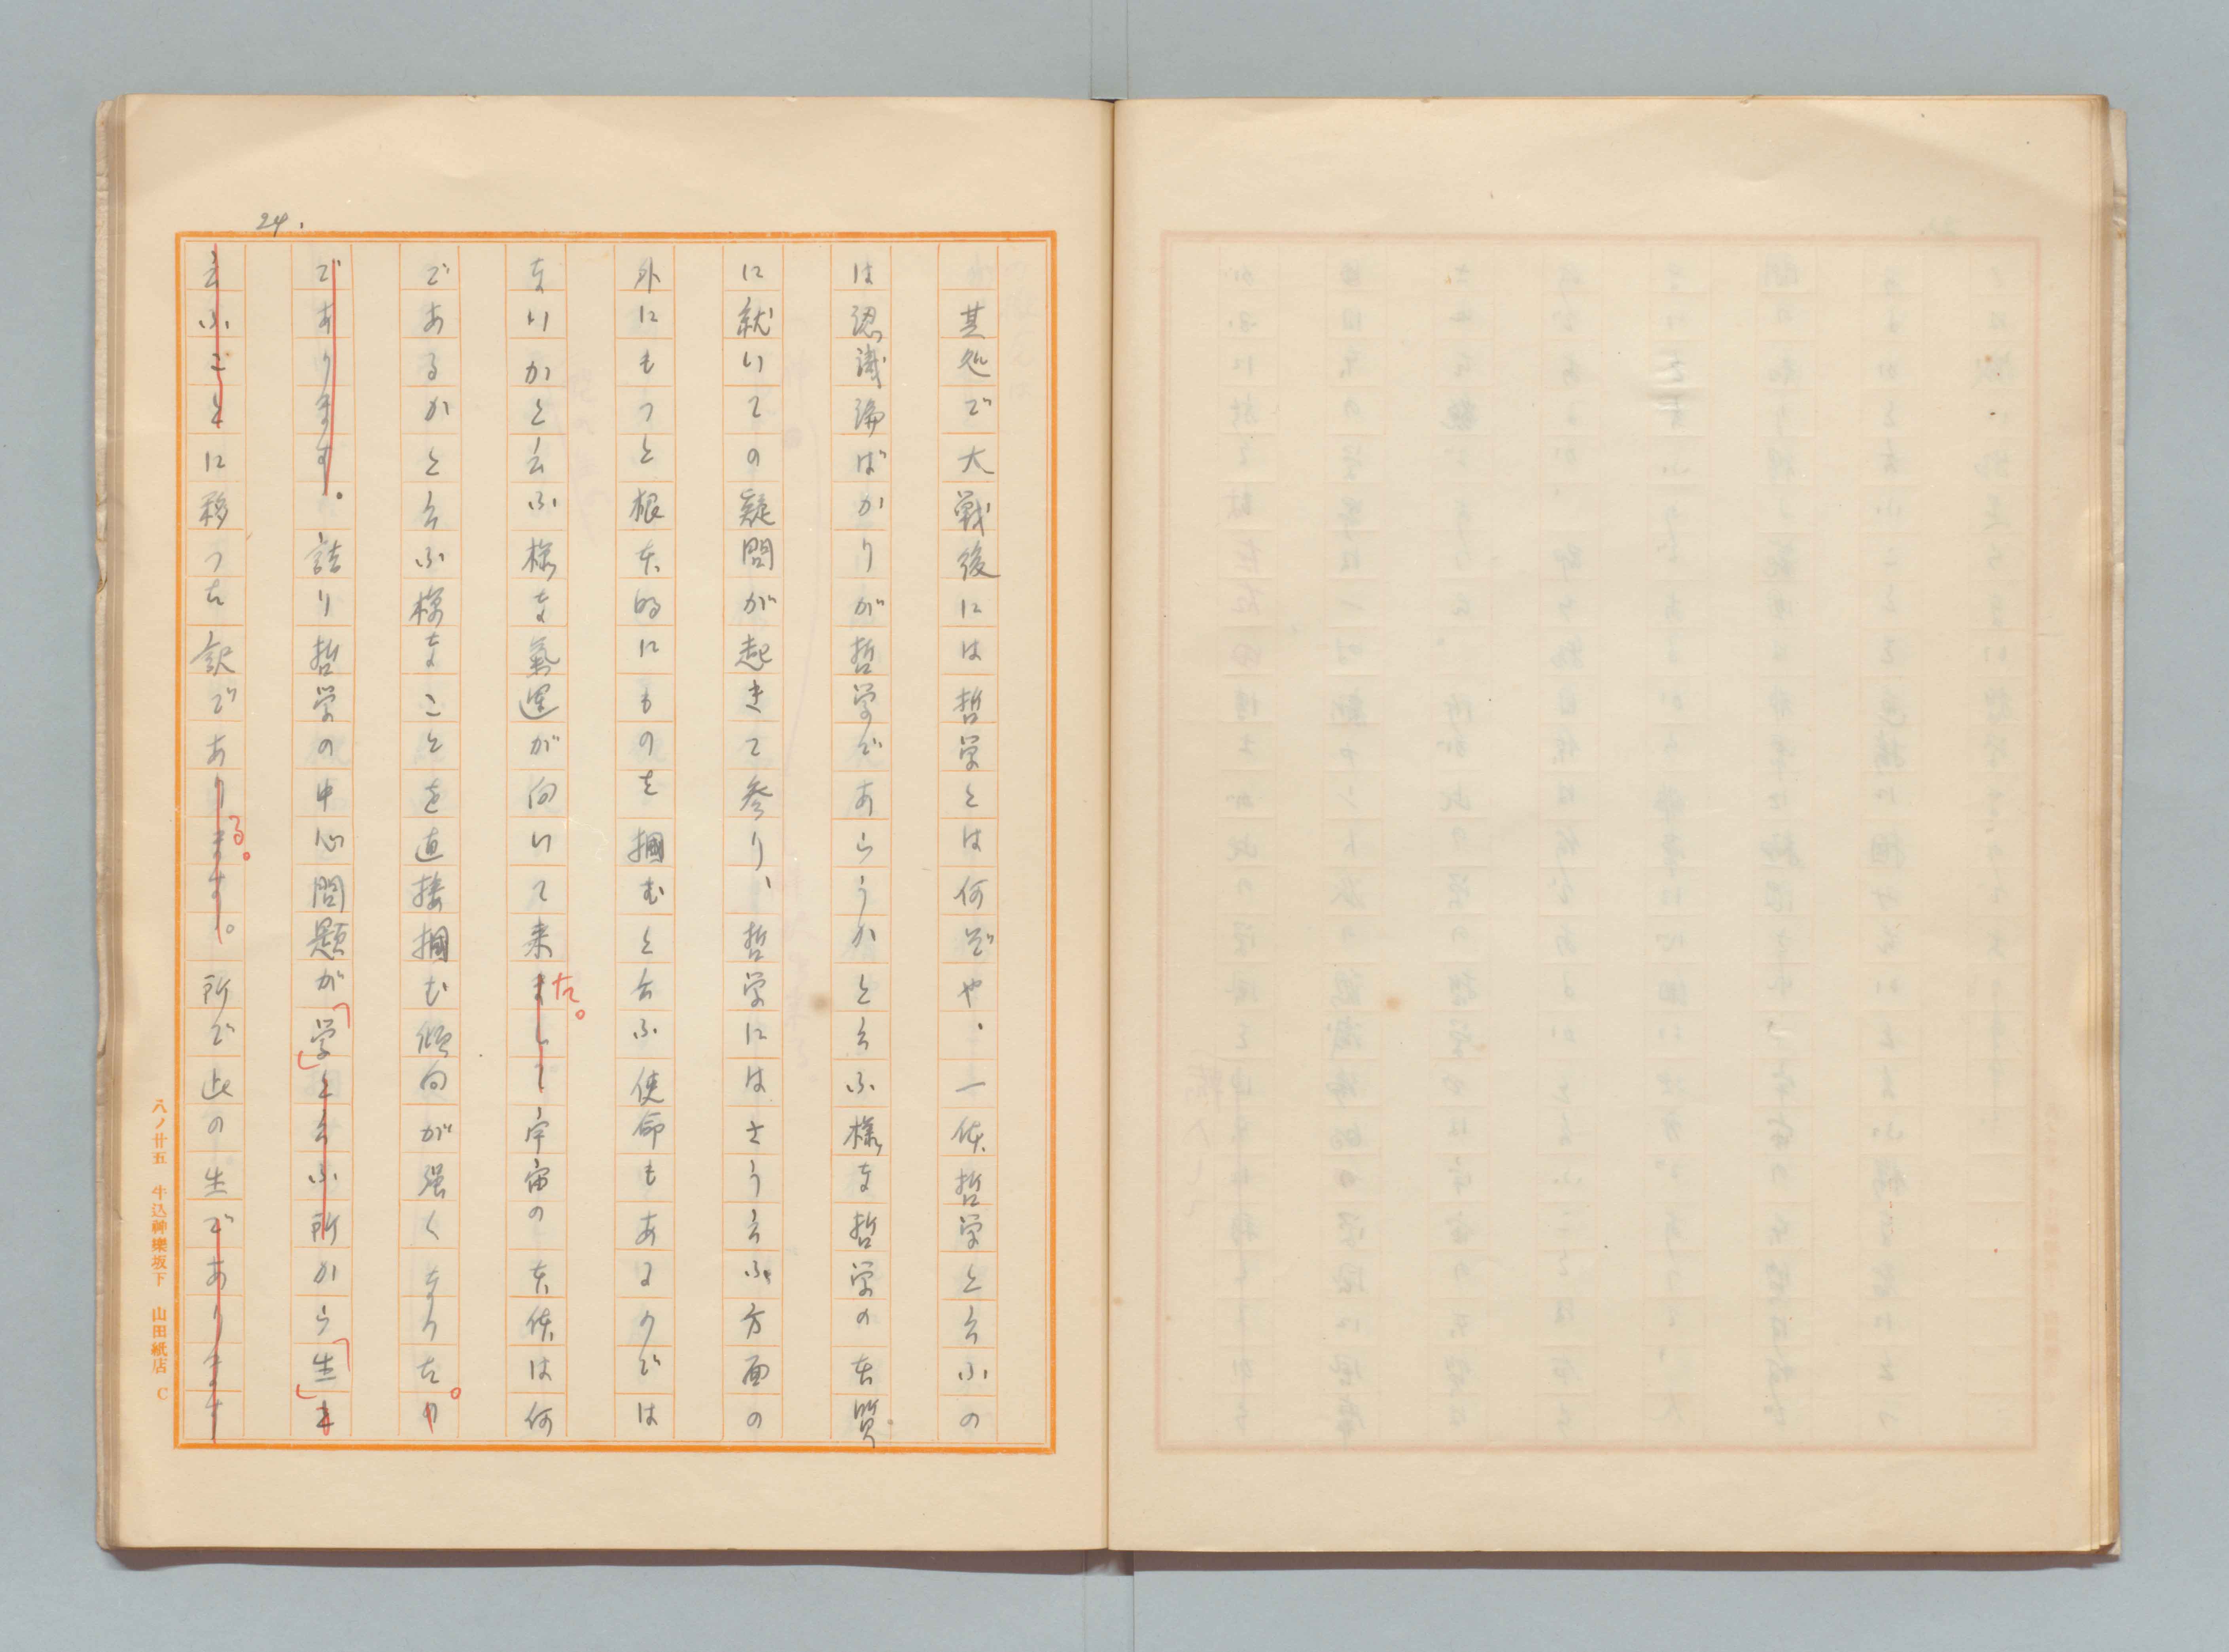 24.
其処で大戦後には哲学とは何ぞや、一体哲学と云ふの
は認識論ばかりが哲学であらうかと云ふ様な哲学の本質
に就いての疑問が起きて参り、哲学にはさう云ふ方面の
外にもつと根本的にものを掴むと云ふ使命もあるのでは
ないかと云ふ様な氣運が向いて来ましてた。宇宙の本体は何
であるかと云ふ様なことを直接掴む傾向が强くなつた。の
であります。詰り哲学の中心問題が「学」と云ふ所から「生」と
云ふことに移つた訳でありまする。。所で此の生であります
八ノ廿五 牛込神樂坂下 山田紙店 C